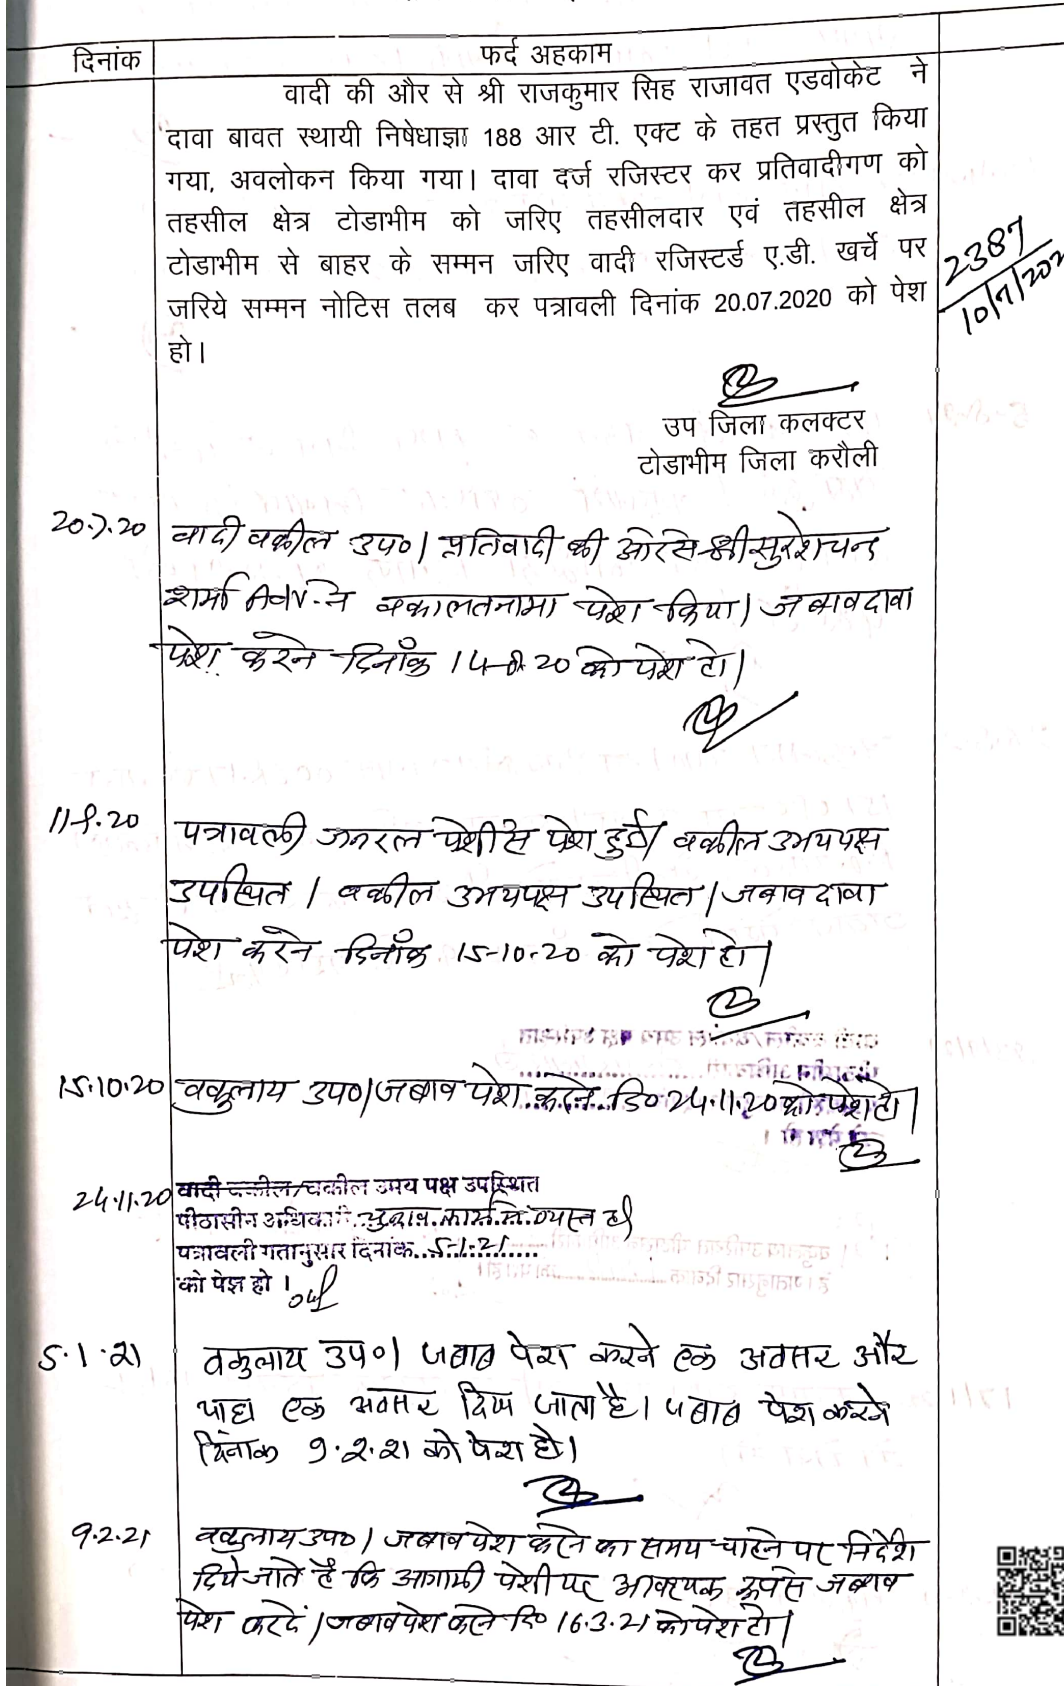 दिनांक फर्द अहकाम
वादी की और से श्री राजकुमार सिह राजावत एडवोकेट ने
दावा बावत स्थायी निषेधाज्ञा 188 आर टी. एक्ट के तहत प्रस्तुत किया
गया, अवलोकन किया गया। दावा दर्ज रजिस्टर कर प्रतिवादीगण को
तहसील क्षेत्र टोडाभीम को जरिए तहसीलदार एवं तहसील क्षेत्र
टोडाभीम से बाहर के सम्मन जरिए वादी रजिस्टर्ड ए.डी. खर्चे पर
जरिये सम्मन नोटिस तलब कर पत्रावली दिनांक 20.07.2020 को पेश
हो।
2387
10/7/202
उप जिला कलक्टर
टोडाभीम जिला करौली
20.7.20 वादी वकील उप०। प्रतिवादी की ओर से श्री सुरेशचन्द
शर्मा Adv. ने वकालतनामा पेश किया। जबावदावा
पेश करने दिनाँक 14-8-20 को पेश हो।
11-8-20 पत्रावली जनरल पेशी से पेश हुई। वकील उभयपक्ष
उपस्थित। वकील उभयपक्ष उपस्थित। जबाव दावा
पेश करने दिनाँक 15-10-20 को पेश हो।
15.10.20 वकुलाय उप०। जबाव पेश करने दि० 24.11.20 को पेश हो।
24.11.20 वादी वकील/वकील उभय पक्ष उपस्थित
पीठासीन अधिकारी चुनाव कार्य में व्यस्त है।
पत्रावली गतानुसार दिनांक..5.1.21......
को पेश हो।
5.1.21 वकुलाय उप०। जबाब पेश करने एक अवसर और
चाहा एक अवसर दिया जाता है। जबाब पेश करने
दिनांक 9.2.21 को पेश हो।
9.2.21 वकुलाय उप०। जबाव पेश करने का समय चाहने पर निर्देश
दिये जाते है कि आगामी पेशी पर आवश्यक रूप से जबाव
पेश करदें। जबाव पेश करने दि० 16.3.21 को पेश हो।